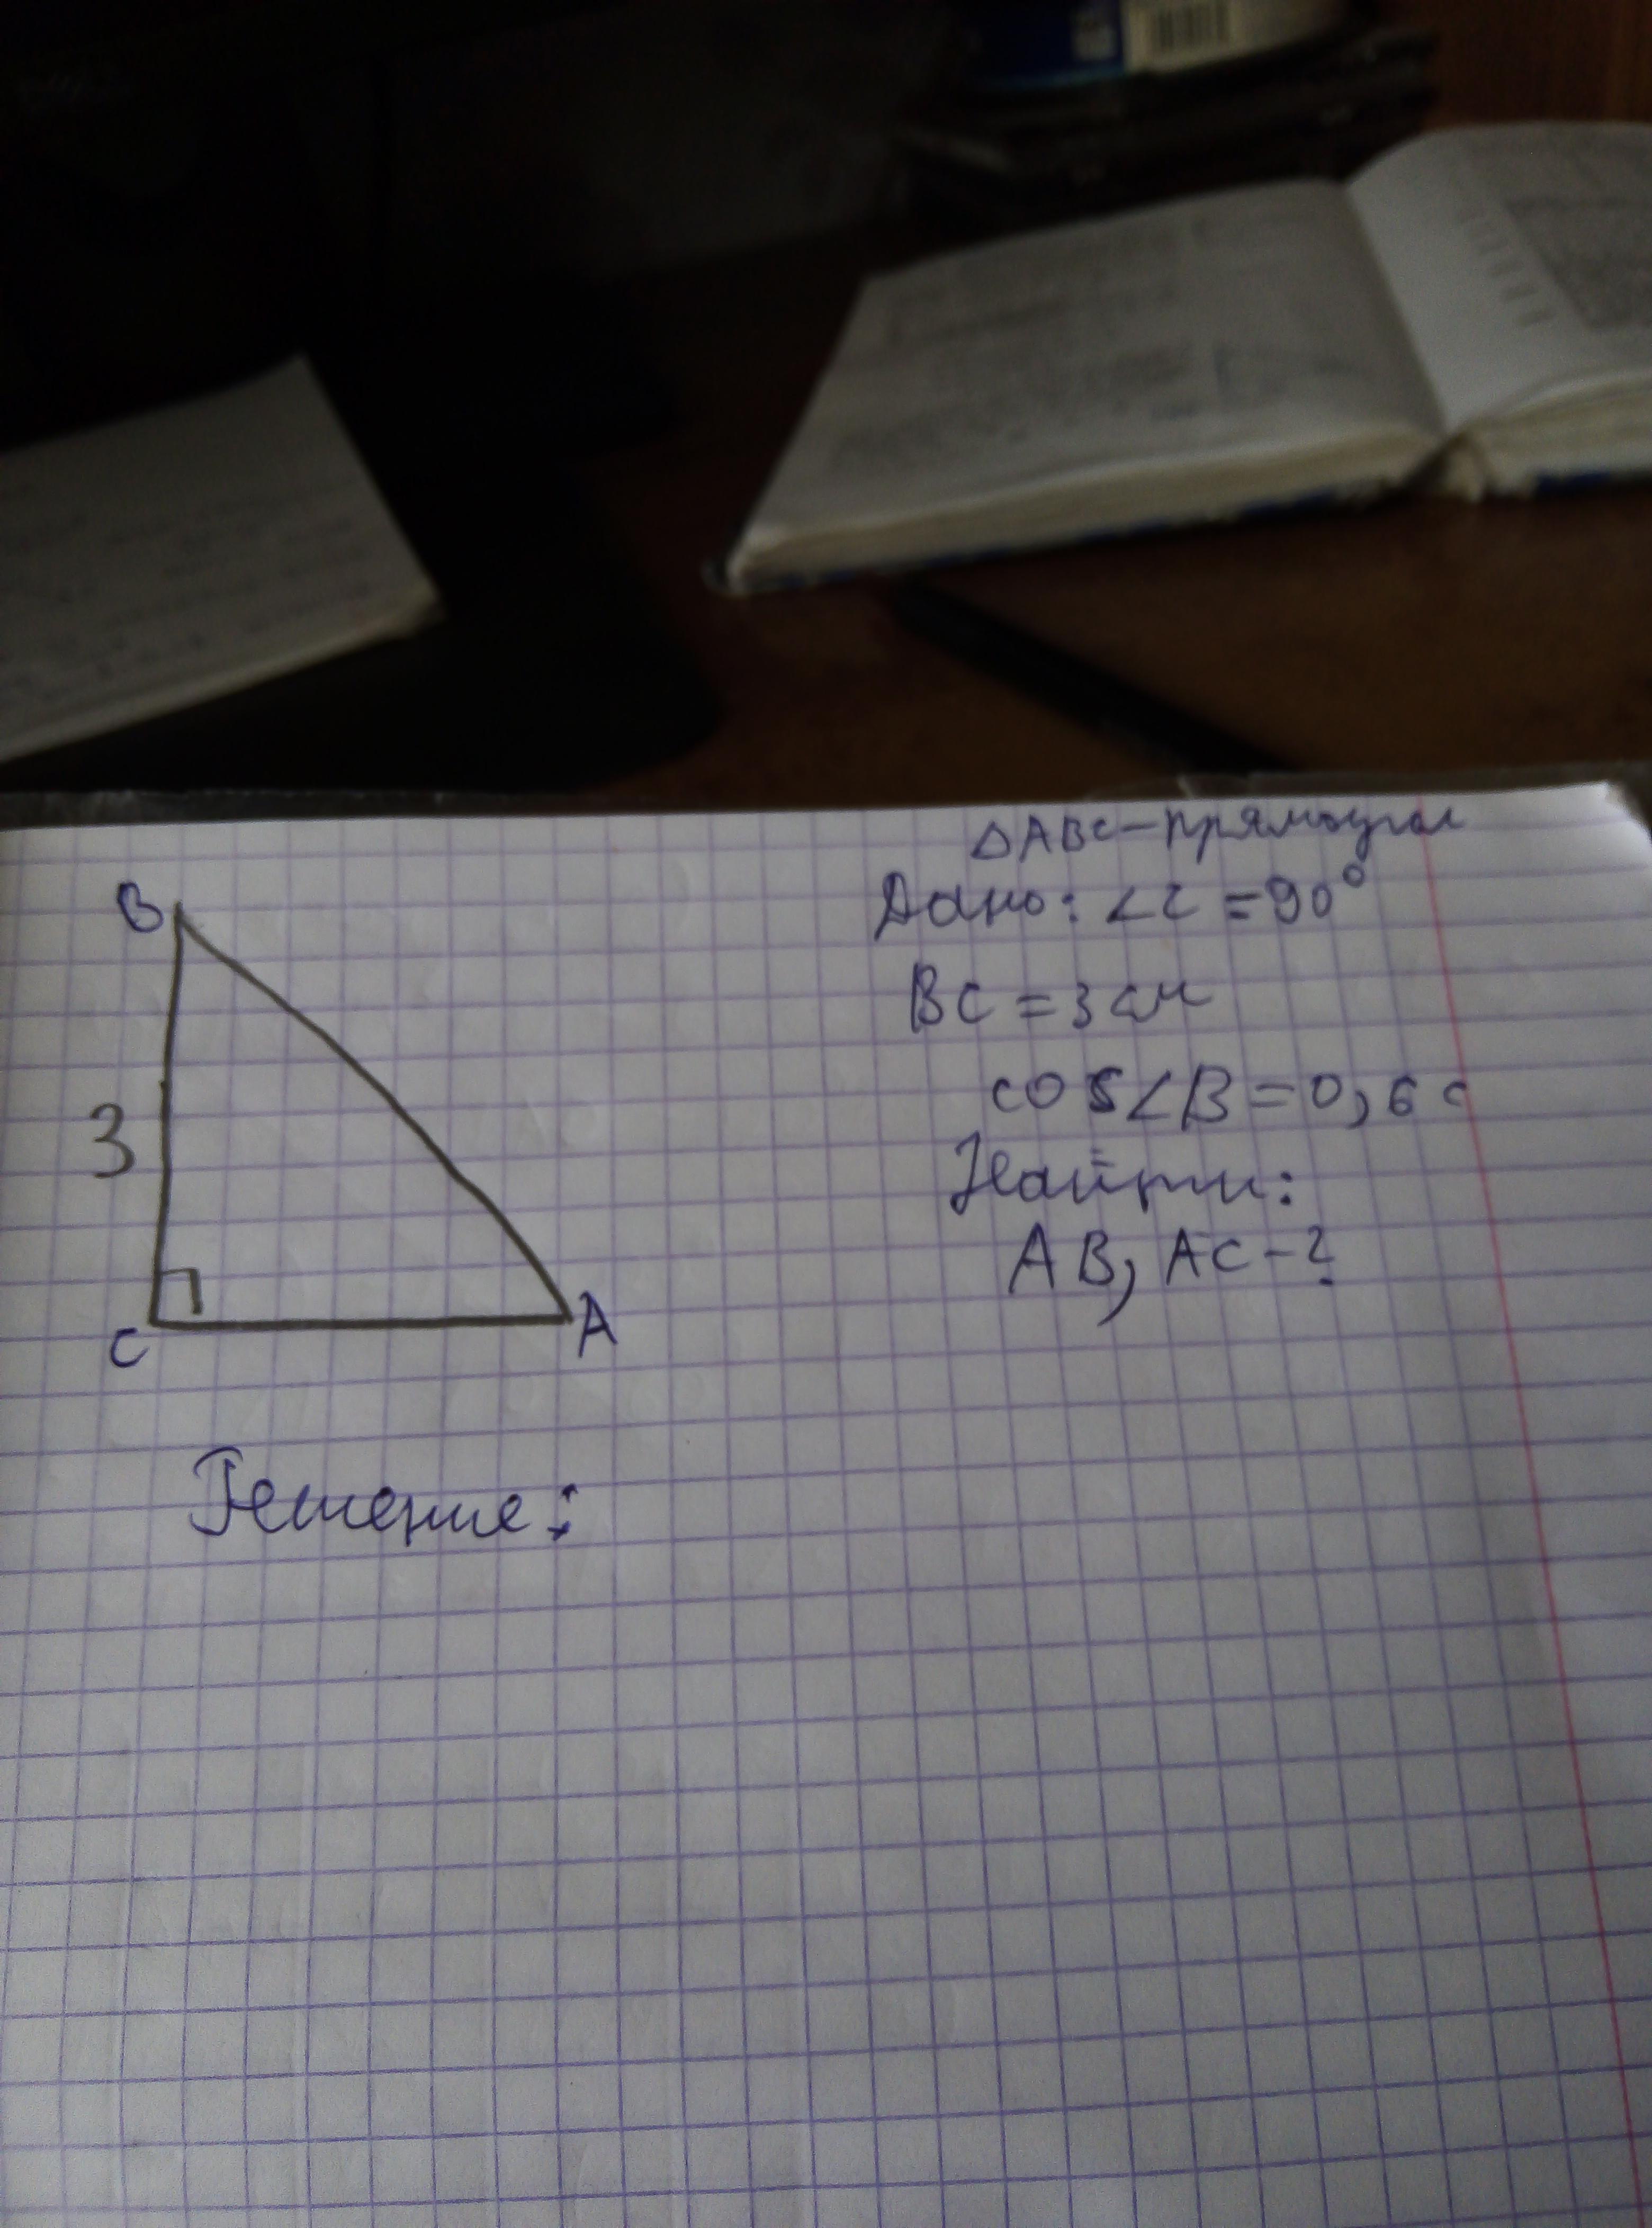 △ABC - прямоугол
Дано: ∠C = 90°
BC = 3 см
cos∠B = 0,6 c
Найти:
AB, AC - ?
B
3
C
A
Решение: